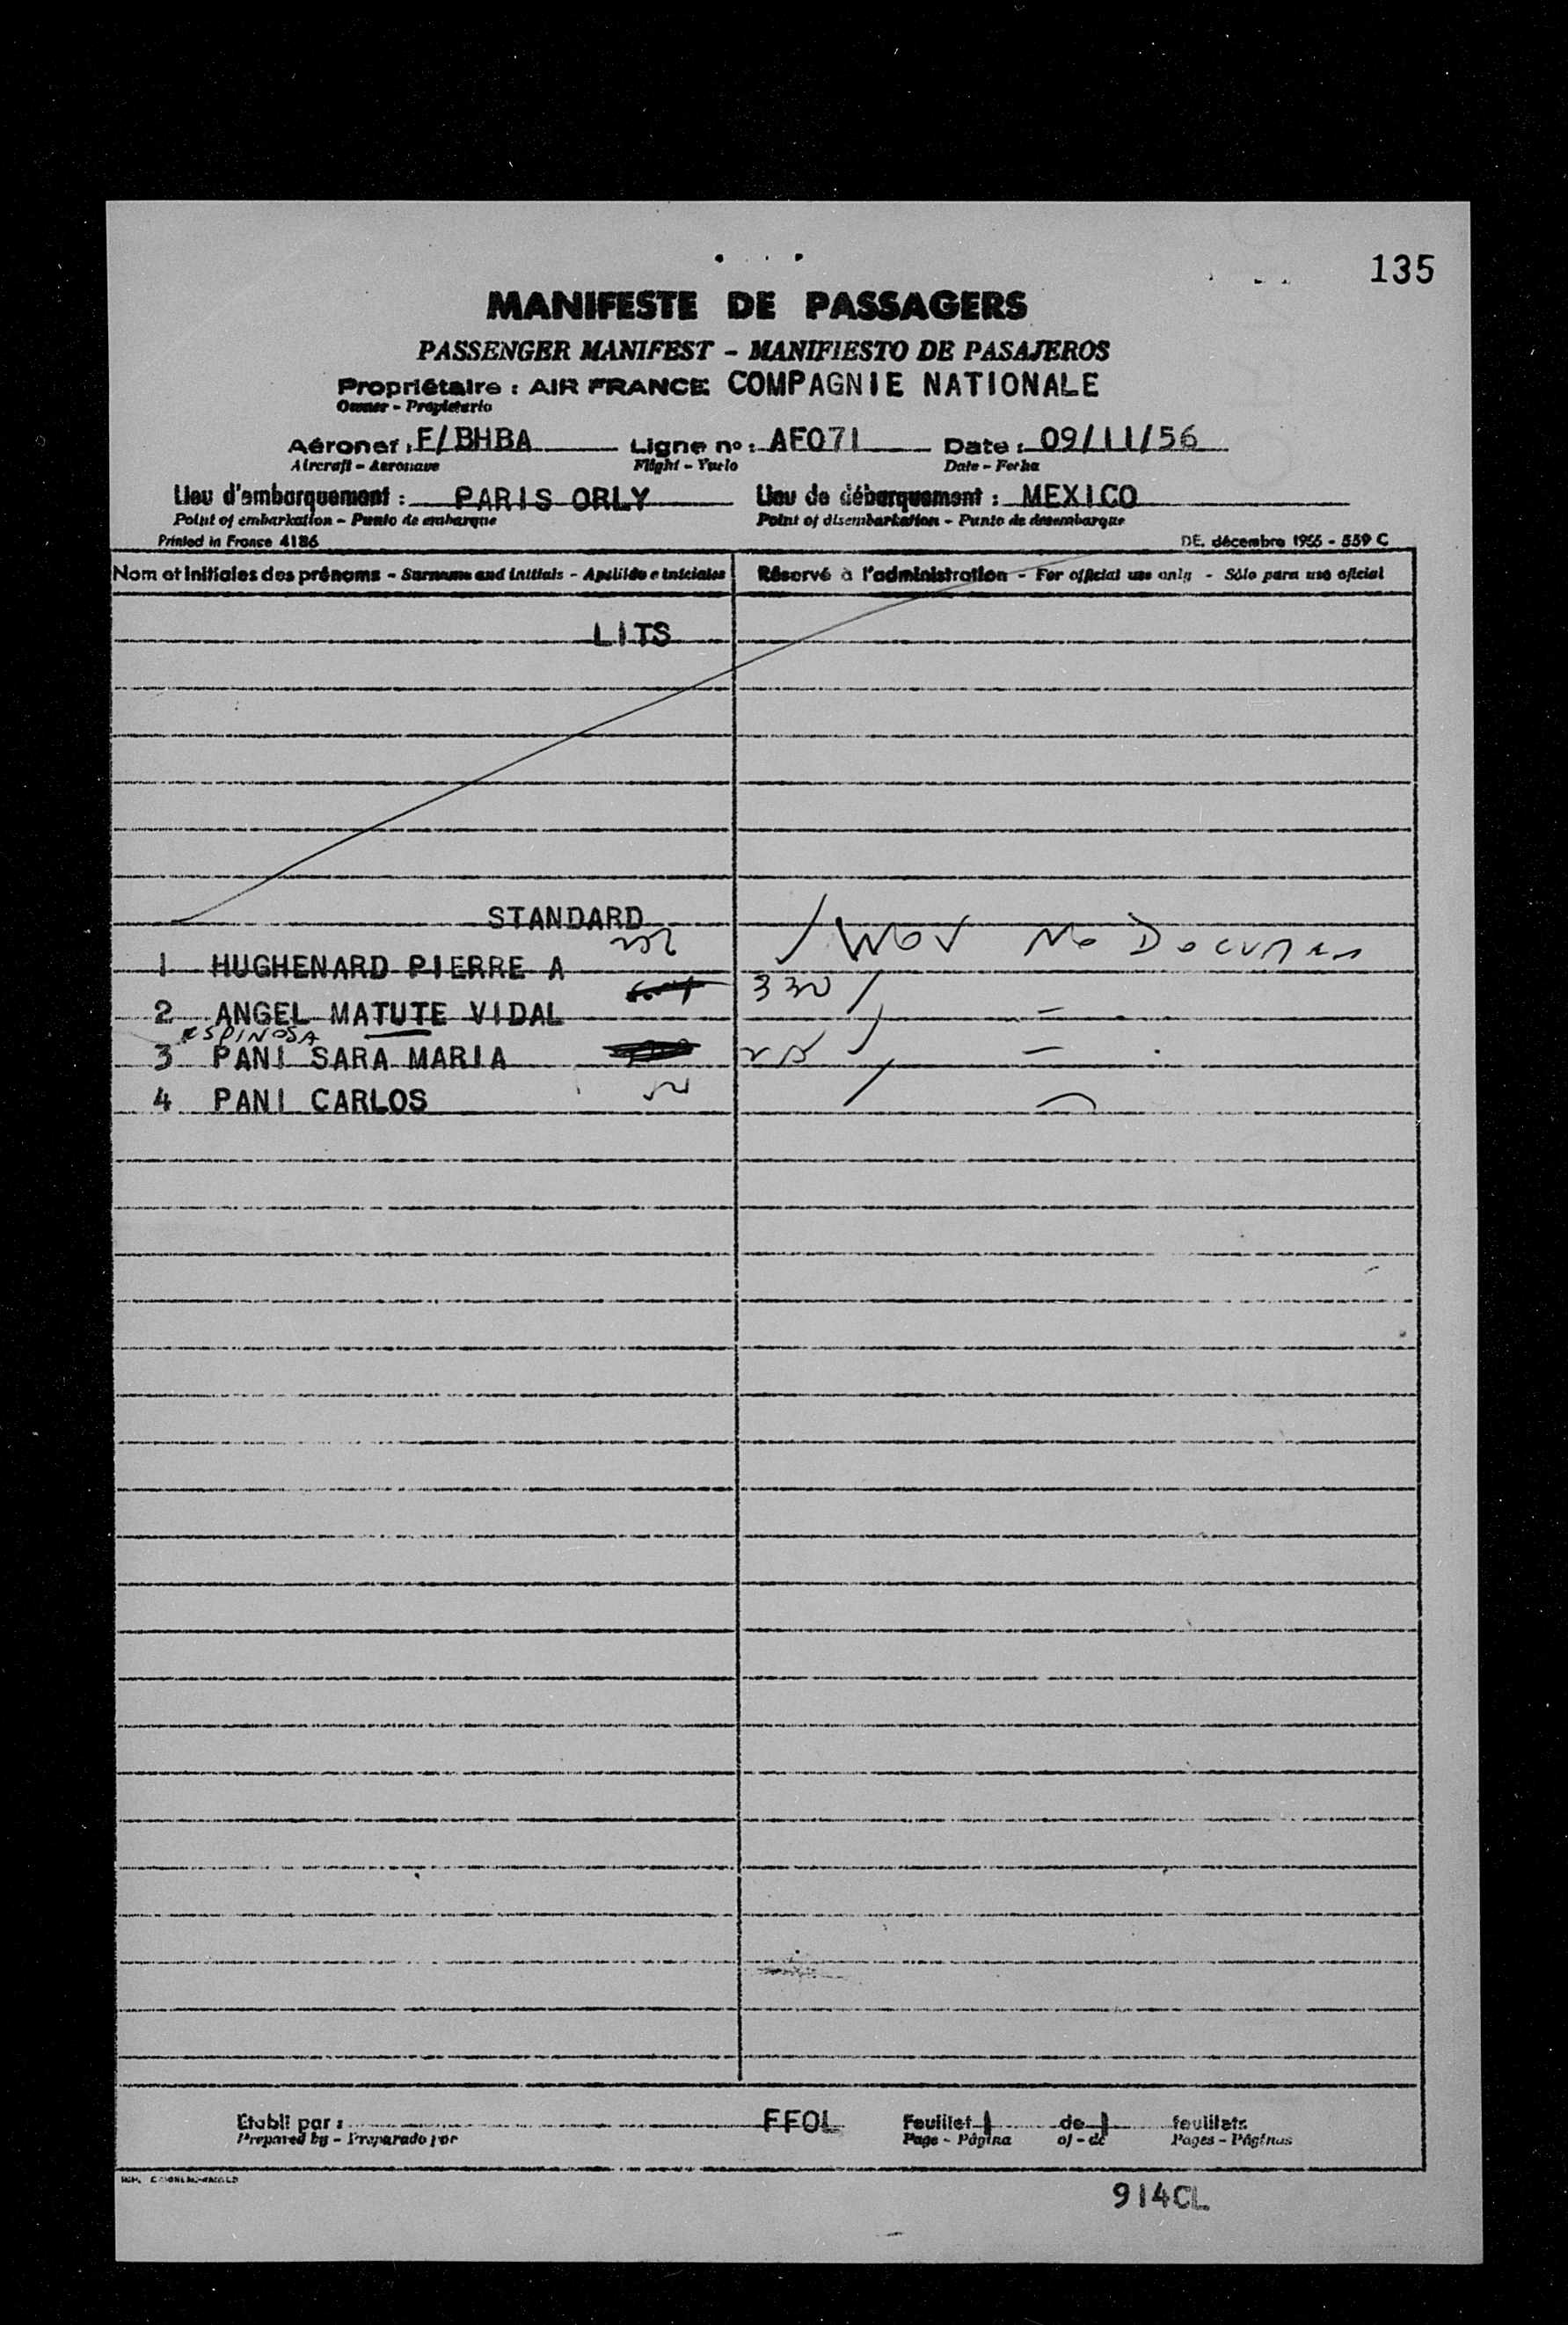 135
MANIFESTE DE PASSAGERS
PASSENGER MANIFEST - MANIFIESTO DE PASAJEROS
Propriétaire : AIR FRANCE COMPAGNIE NATIONALE
Owner - Propietario
Aéronef : F/BHBA Ligne no : AF071 Date : 09/11/56
Aircraft - Aeronave Flight - Vuelo Date - Fecha
Lieu d'embarquement : PARIS ORLY Lieu de débarquement : MEXICO
Point of embarkation - Punto de embarque Point of disembarkation - Punto de desembarque
Printed in France 4186 DE. décembre 1955 - 559 C
Nom et initiales des prénoms - Surname and initials - Apellido e iniciales Réservé à l'administration - For official use only - Sólo para uso oficial
LITS
STANDARD
No
1 HUGHENARD PIERRE A
330
2 ANGEL MATUTE VIDAL
ESPINOSA
3 PANI SARA MARIA
4 PANI CARLOS
Etabli par : FFOL Feuillet 1 de 1 feuillets
Prepared by - Preparado por Page - Página of - de Pages - Páginas
914CL